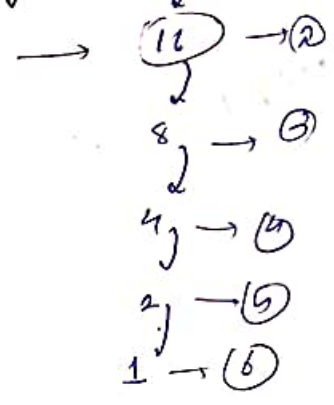 → 11 → 2
8 → 3
4 → 4
2 → 5
1 → 6